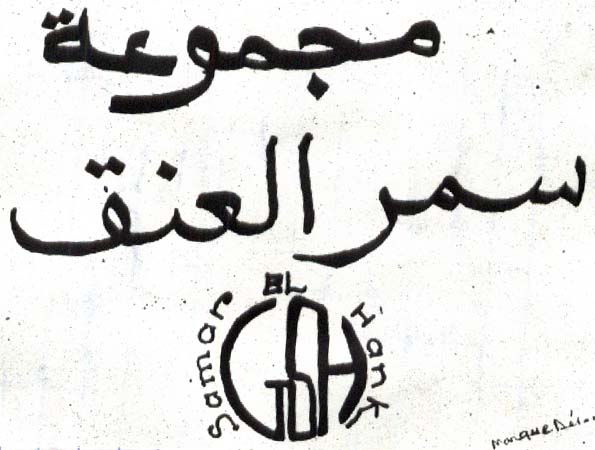 مجموعة
سمر العنق
Samar EL Hank
GSH
Marque